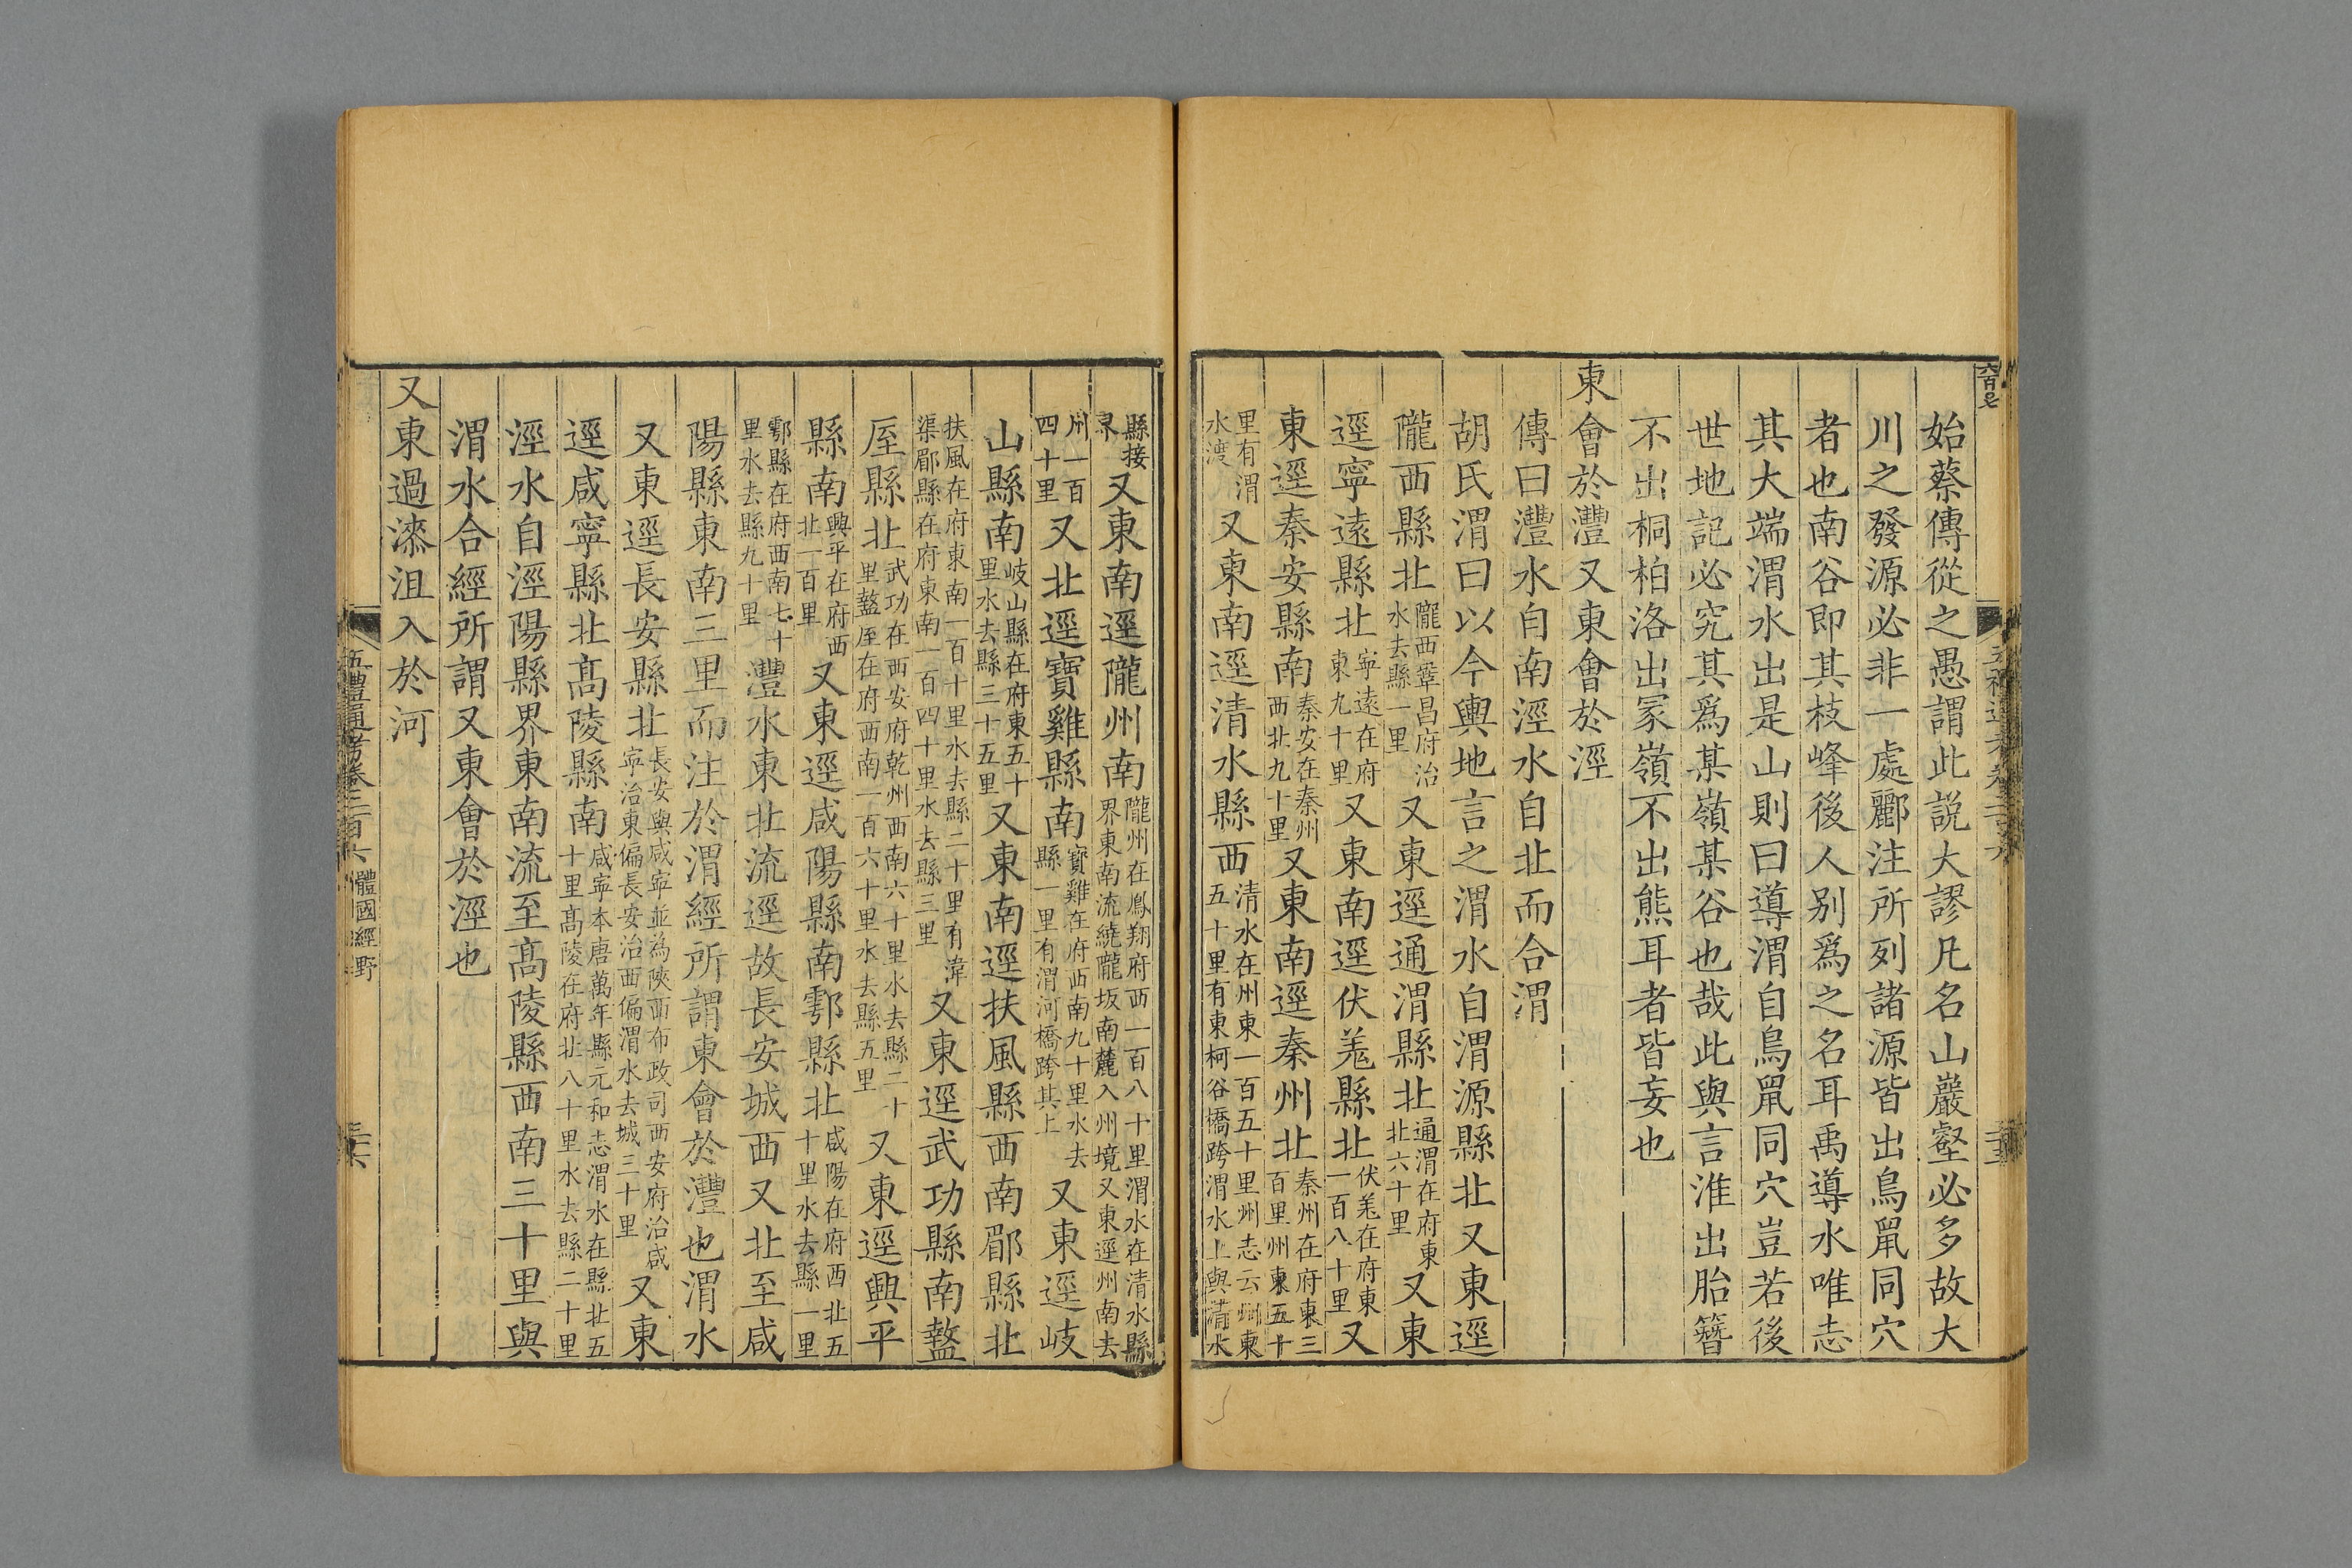 始蔡傳從之愚謂此説大謬凡名山巖壑必多故大
川之發源必非一處酈注所列諸源皆出鳥鼠同穴
者也南谷即其枝峰後人别爲之名耳禹導水唯志
其大端渭水出是山則曰導渭自鳥鼠同穴豈若後
世地記必究其爲某嶺某谷也哉此與言淮出胎簪
不出桐柏洛出冢嶺不出熊耳者皆妄也
東會於灃又東會於涇
傳曰灃水自南涇水自北而合渭
胡氏渭曰以今輿地言之渭水自渭源縣北又東逕
隴西縣北隴西鞏昌府治水去縣一里又東逕通渭縣北通渭在府東北六十里又東
逕寧遠縣北寧遠在府東九十里又東南逕伏羌縣北伏羌在府東一百八十里又
東逕秦安縣南秦安在秦州西北九十里又東南逕秦州北秦州在府東三百里州東五十
里有渭水渡又東南逕清水縣西清水在州東一百五十里州志云州東五十里有東柯谷橋跨渭水上與清水
縣接界又東南逕隴州南隴州在鳳翔府西一百八十里渭水在清水縣界東南流繞隴坂南麓入州境又東逕州南去
州一百四十里又北逕寶雞縣南寶雞在府西南九十里水去縣一里有渭河橋跨其上又東逕岐
山縣南岐山縣在府東五十里水去縣三十五里又東南逕扶風縣西南郿縣北
扶風在府東南一百十里水去縣二十里有湋渠郿縣在府東南一百四十里水去縣三里又東逕武功縣南盩
厔縣北武功在西安府乾州西南六十里水去縣二十里盩厔在府西南一百六十里水去縣五里又東逕興平
縣南興平在府西北一百里又東逕咸陽縣南鄠縣北咸陽在府西北五十里水去縣一里
鄠縣在府西南七十里水去縣九十里灃水東北流逕故長安城西又北至咸
陽縣東南三里而注於渭經所謂東會於灃也渭水
又東逕長安縣北長安與咸寧並為陝西布政司西安府治咸寧治東偏長安治西偏渭水去城三十里又東
逕咸寧縣北高陵縣南咸寧本唐萬年縣元和志渭水在縣北五十里高陵在府北八十里水去縣二十里
涇水自涇陽縣界東南流至高陵縣西南三十里與
渭水合經所謂又東會於涇也
又東過漆沮入於河
五禮通考卷二百六 體國經野